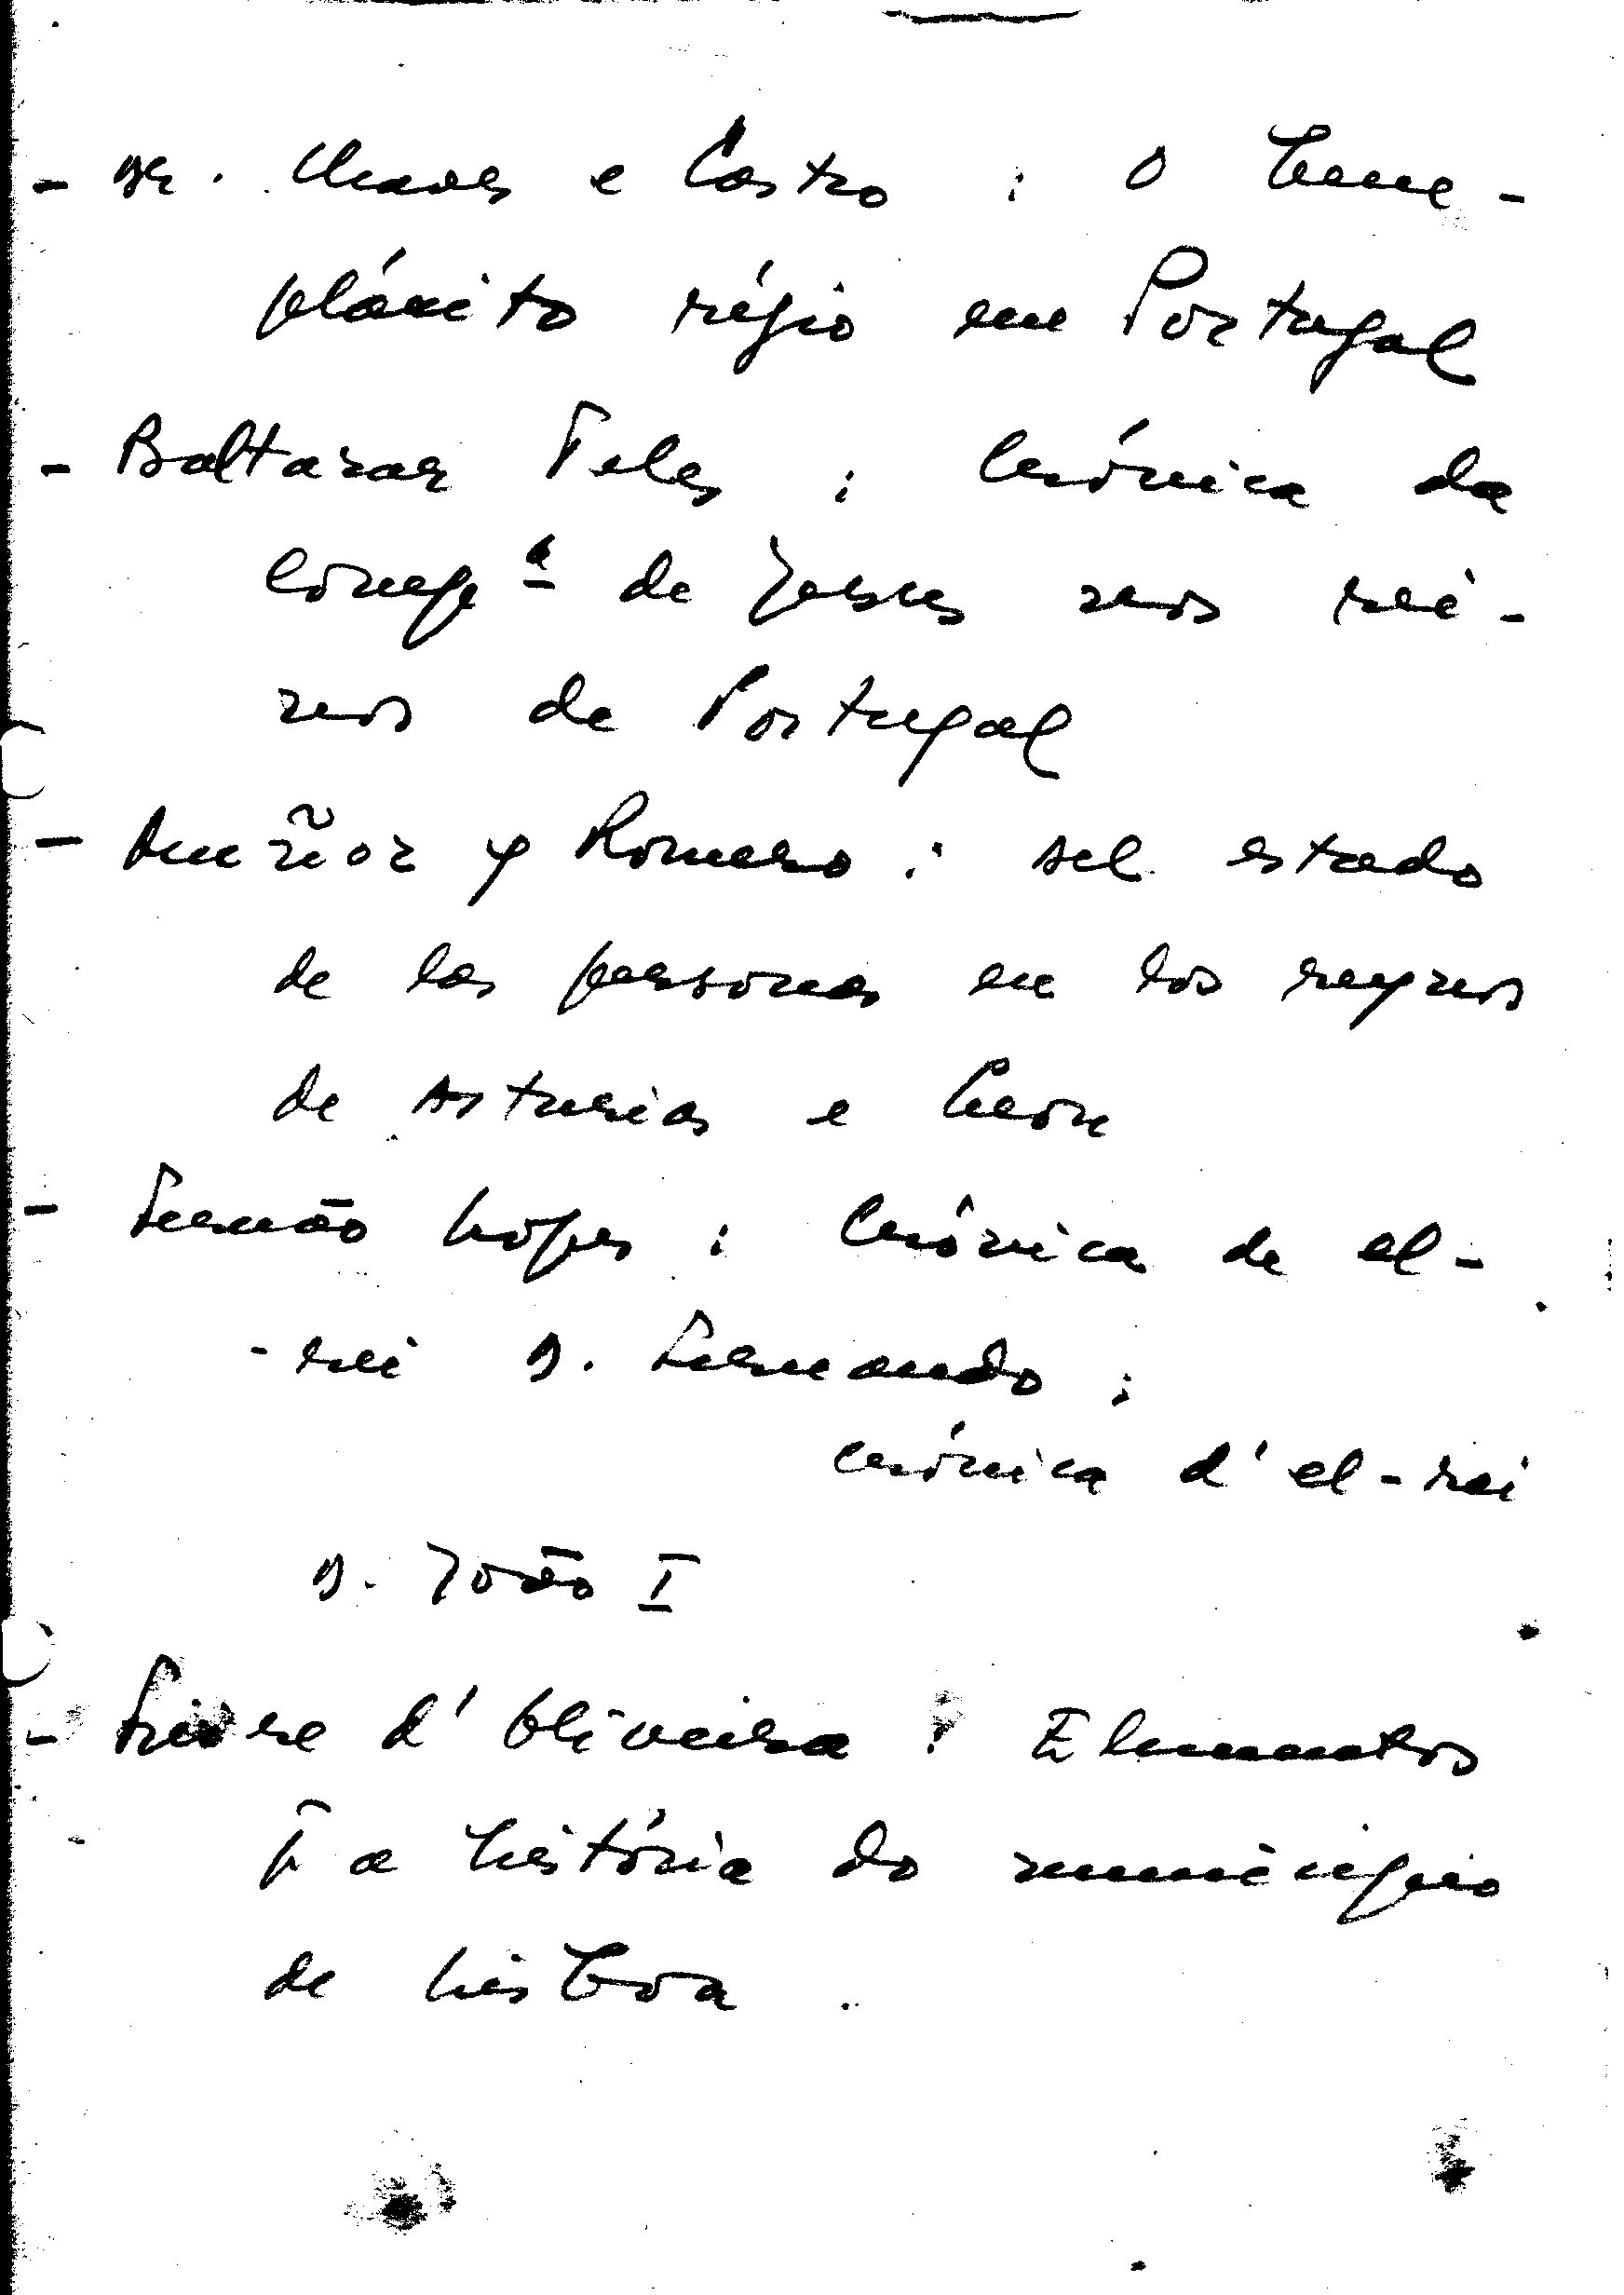 - Dr. Chaves e Castro : O bene-
plácito régio em Portugal
- Baltazar Teles : Crónica da
Comp.ª de Jesus nos rei-
nos de Portugal
- Muñoz y Romero : del estado
de las personas en los reynos
de Asturias e Leon
- Fernão Lopes : Crónica de el-
-rei D. Fernando ;
crónica d'el-rei
D. João I
- Freire d'Oliveira : Elementos
p̄ a história do município
de Lisboa.